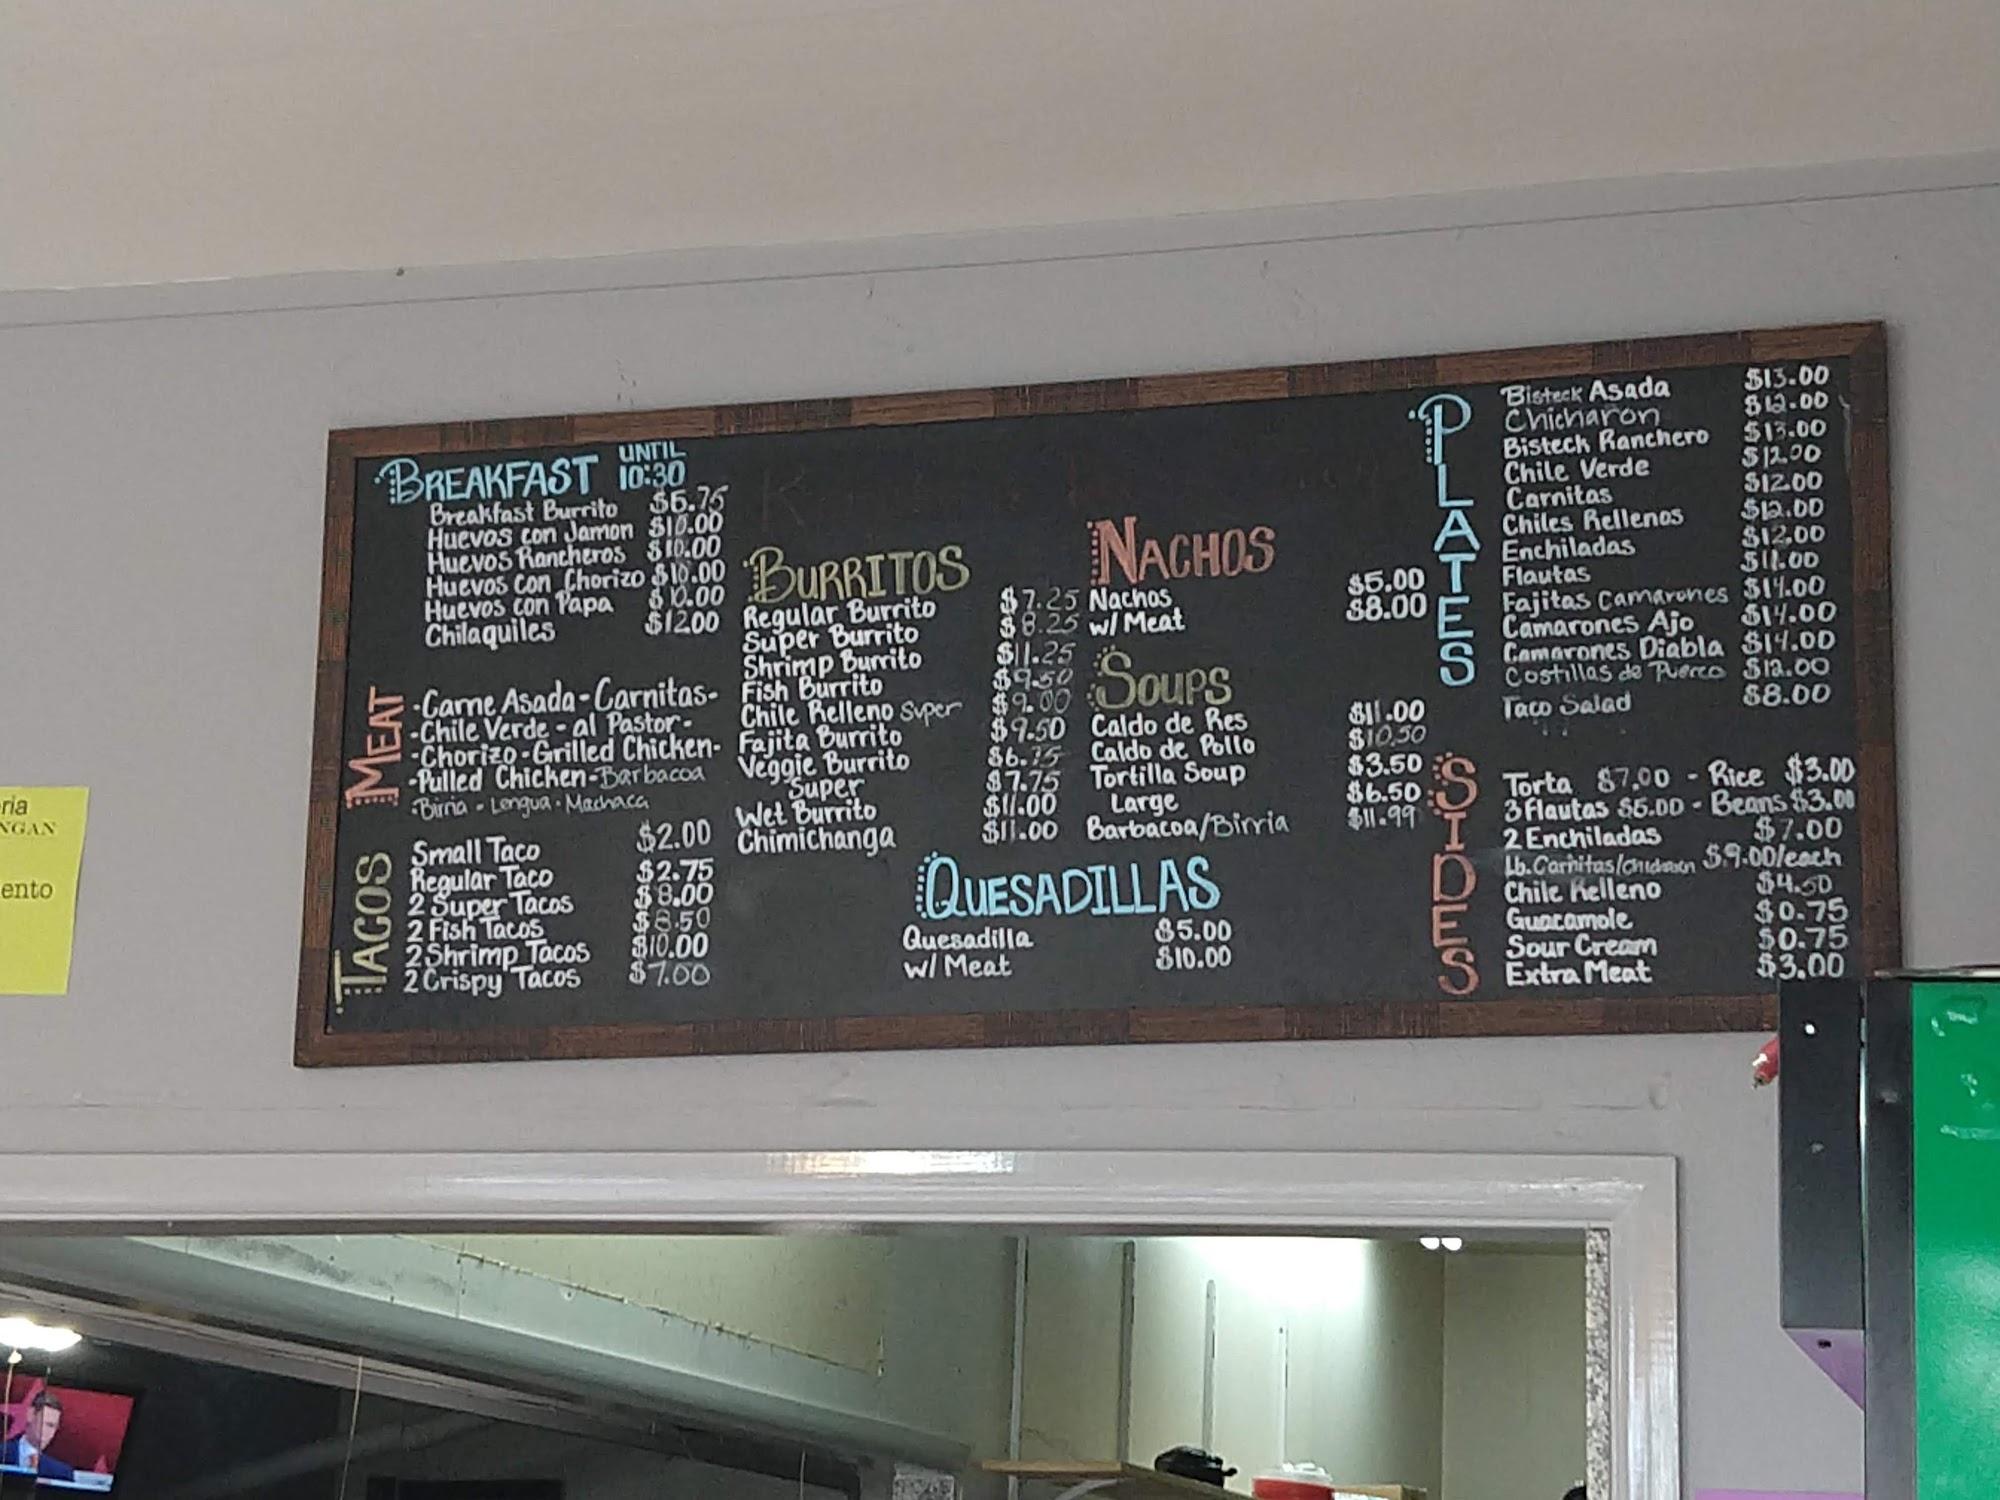 BREAKFAST UNTIL 10:30
Breakfast Burrito $6.75
Huevos con Jamon $10.00
Huevos Rancheros $10.00
Huevos con Chorizo $10.00
Huevos con Papa $10.00
Chilaquiles $12.00
MEAT
·Carne Asada-Carnitas-
·Chile Verde - al Pastor-
·Chorizo-Grilled Chicken-
·Pulled Chicken-Barbacoa
·Birria - Lengua · Machaca
TACOS
Small Taco $2.00
Regular Taco $2.75
2 Super Tacos $8.00
2 Fish Tacos $8.50
2 Shrimp Tacos $10.00
2 Crispy Tacos $7.00
BURRITOS
Regular Burrito $7.25
Super Burrito $8.25
Shrimp Burrito $11.25
Fish Burrito $9.50
Chile Relleno Super $9.00
Fajita Burrito $9.50
Veggie Burrito $6.75
Super $7.75
Wet Burrito $11.00
Chimichanga $11.00
NACHOS
Nachos $5.00
w/ Meat $8.00
SOUPS
Caldo de Res $11.00
Caldo de Pollo $10.50
Tortilla Soup $3.50
Large $6.50
Barbacoa/Birria $11.99
QUESADILLAS
Quesadilla $5.00
w/ Meat $10.00
PLATES
Bisteck Asada $13.00
Chicharon $12.00
Bisteck Ranchero $13.00
Chile Verde $12.00
Carnitas $12.00
Chiles Rellenos $12.00
Enchiladas $12.00
Flautas $11.00
Fajitas Camarones $14.00
Camarones Ajo $14.00
Camarones Diabla $14.00
Costillas de Puerco $12.00
Taco Salad $8.00
SIDES
Torta $7.00 - Rice $3.00
3 Flautas $5.00 - Beans $3.00
2 Enchiladas $7.00
Lb. Carnitas/ $9.00/each
Chile Relleno $4.50
Guacamole $0.75
Sour Cream $0.75
Extra Meat $3.00
ria
NGAN
ento